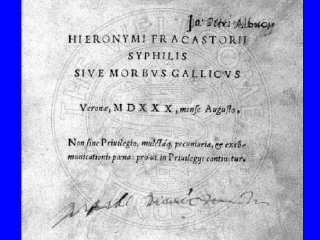 HIERONYMI FRACASTORII
SYPHILIS
SIVE MORBVS GALLICVS
Veronæ, MDXXX, mense Augusto.
Non sine Privilegio, multaq́; pecuniaria, & excõ-
municationis pœna: pro ut in Privilegijs continetur.